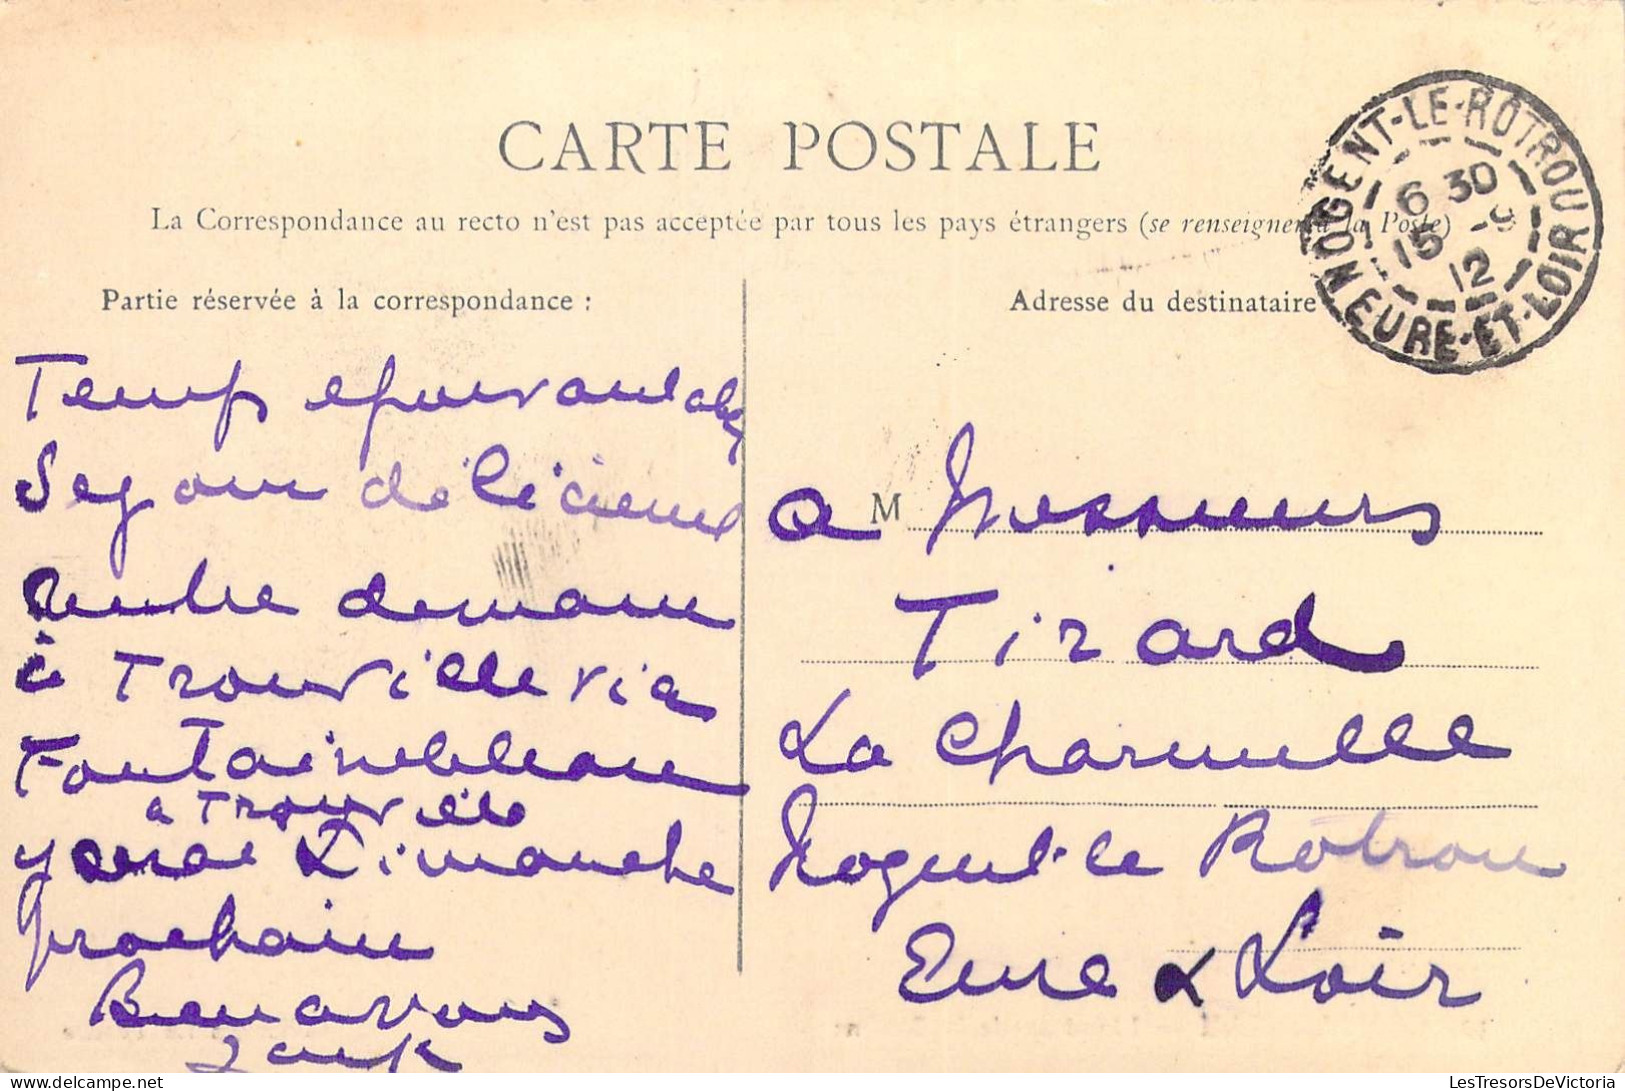 CARTE POSTALE
La Correspondance au recto n'est pas acceptée par tous les pays étrangers (se renseigner à la Poste)
Partie réservée à la correspondance :
Temps epouvantable
Sejour délicieux
Rentre demain
à Trouville via
Fontainebleau
a Trouville
y serai Dimanche
prochain
Bien a vous
Adresse du destinataire
a M Messieurs
Tirard
La Charmille
Nogent-le Rotrou
Eure & Loir
NOGENT-LE-ROTROU
6 30
15 -9
12
EURE-ET-LOIR
LesTresorsDeVictoria